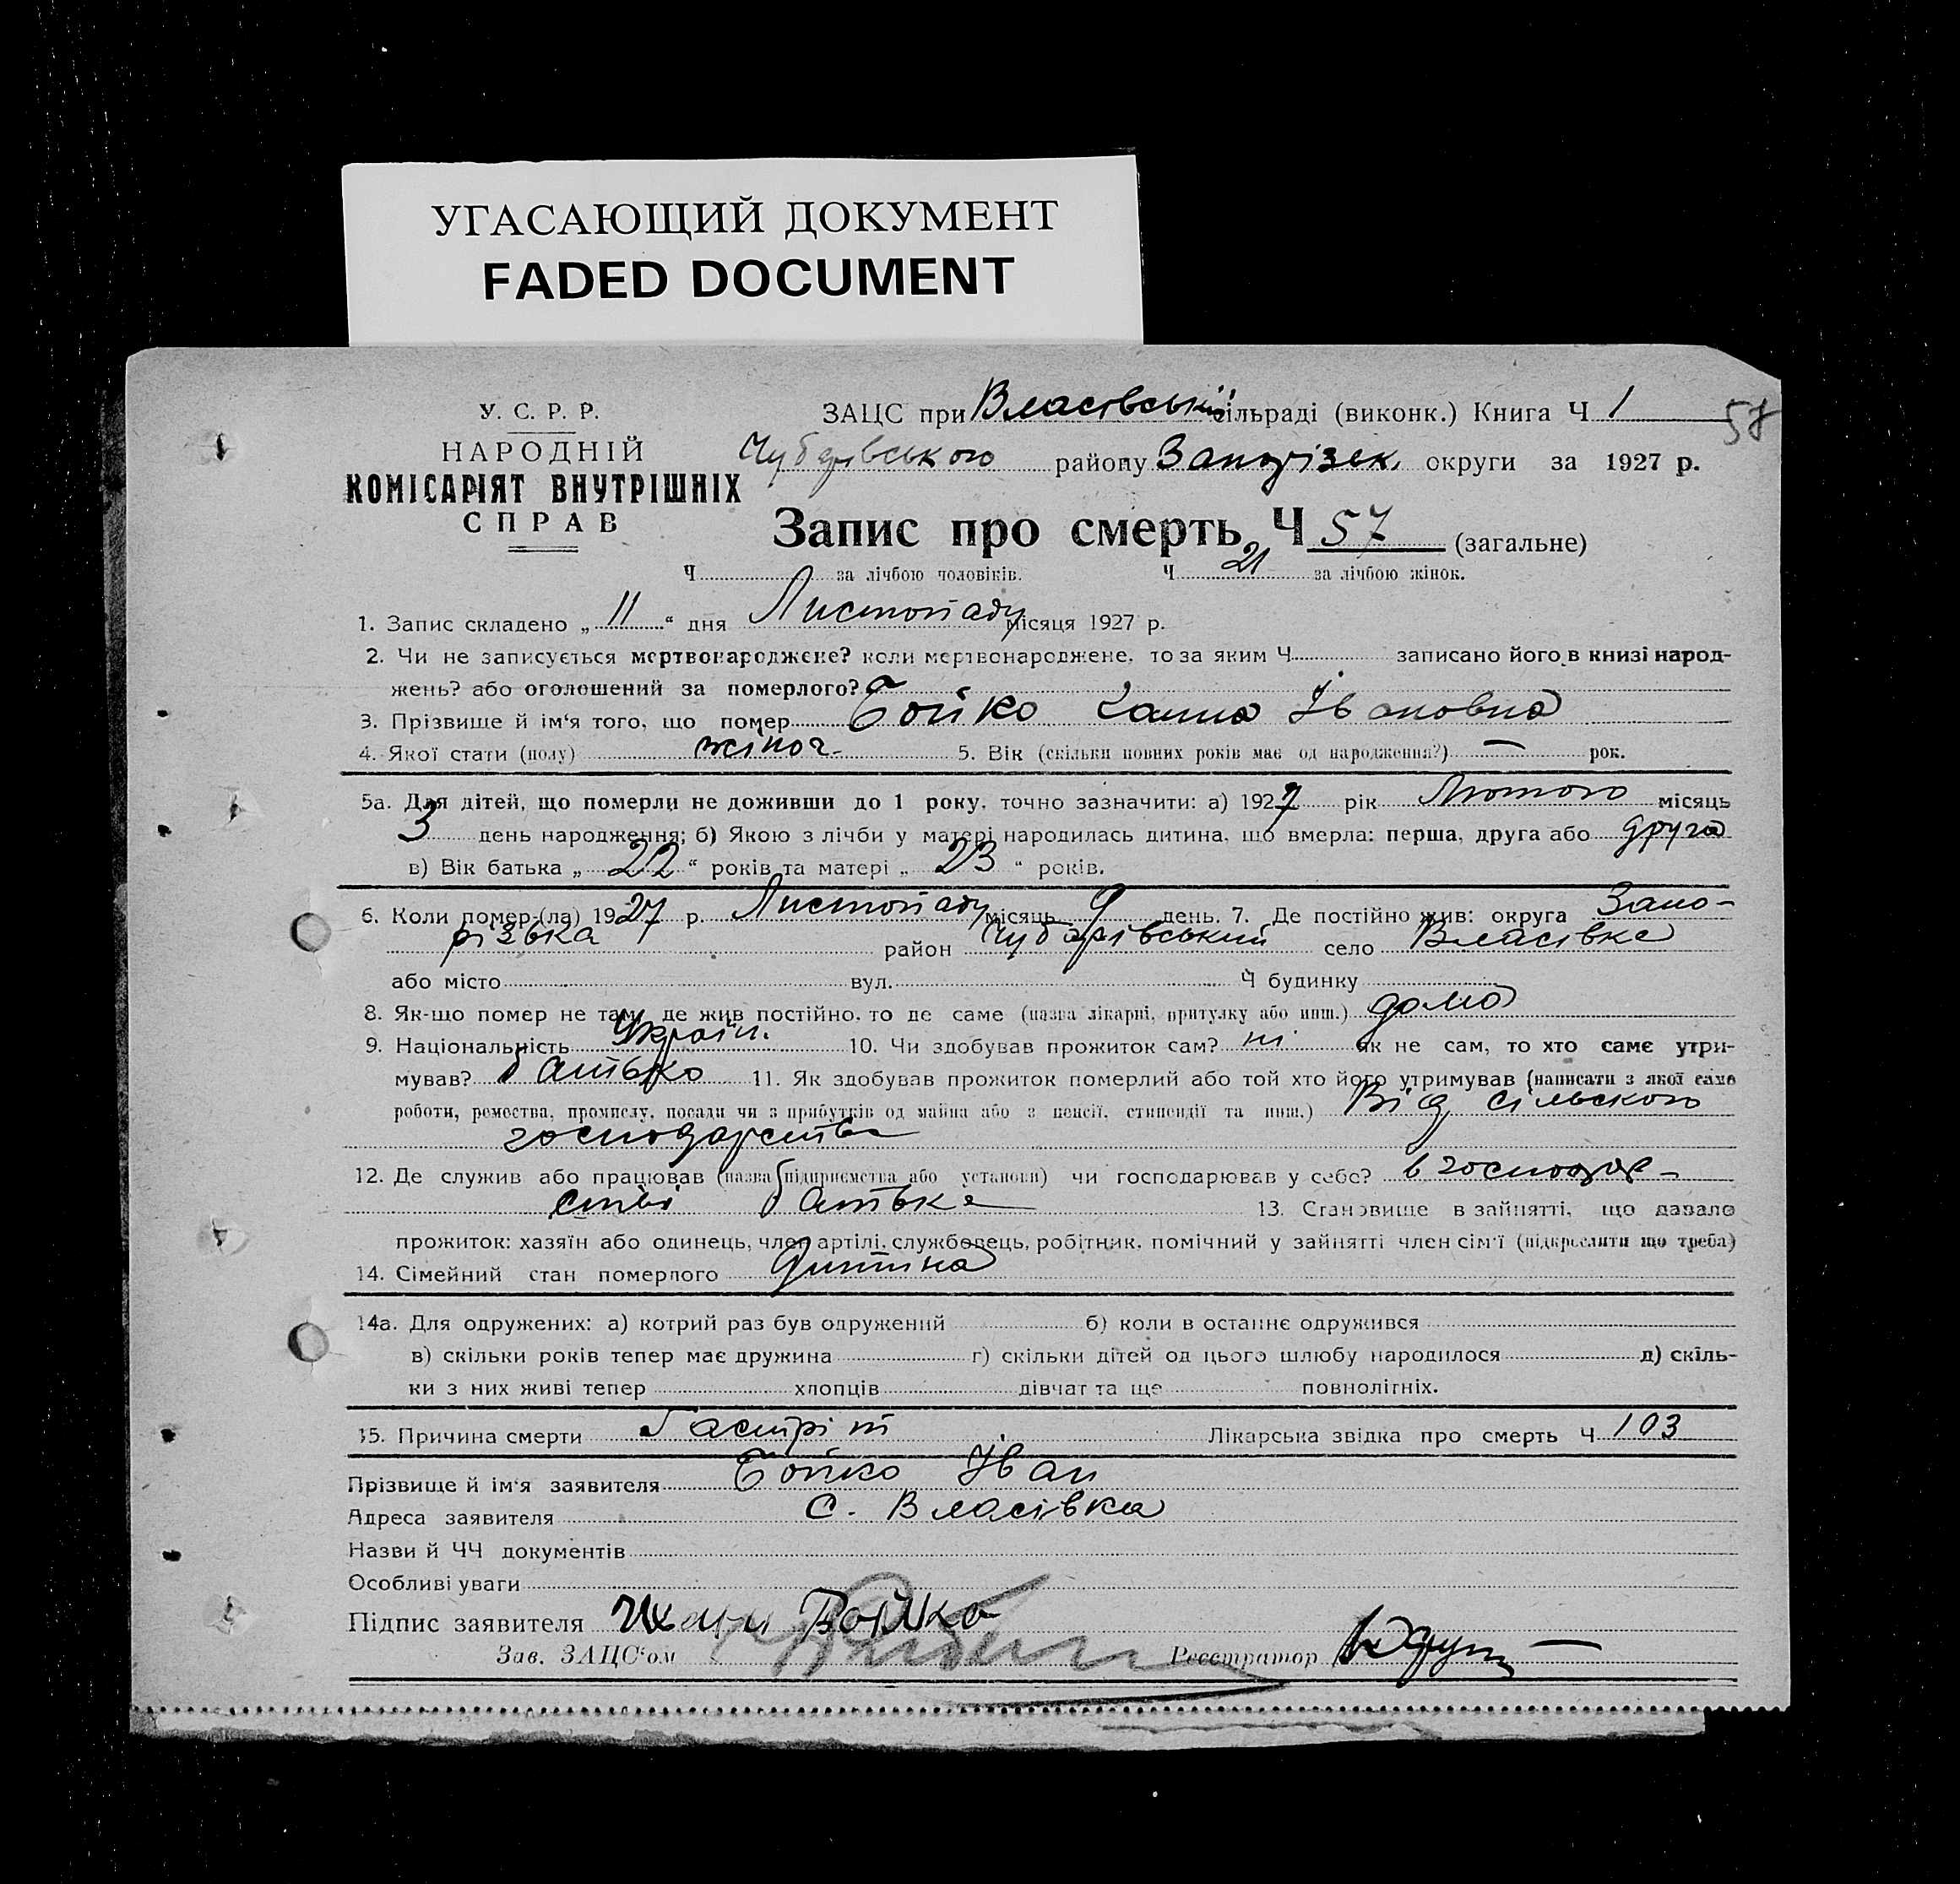 УГАСАЮЩИЙ ДОКУМЕНТ
FADED DOCUMENT
У. С. Р. Р.
НАРОДНІЙ
КОМІСАРІЯТ ВНУТРІШНІХ
СПРАВ
ЗАЦС при Власівській сільраді (виконк.) Книга Ч 1
58
Чубарівського району Запорізьк. округи за 1927 р.
Запис про смерть Ч 57 (загальне)
Ч за лічбою чоловіків. Ч 21 за лічбою жінок.
1. Запис складено „ 11 “ дня Листопаду місяця 1927 р.
2. Чи не записується мертвонароджене? коли мертвонароджене, то за яким Ч записано його в книзі народ-
жень? або оголошений за померлого?
3. Прізвище й ім‘я того, що помер Бойко Ганна Івановна
4. Якої стати (полу) жіноч. 5. Вік (скільки повних років має од народження?) — рок.
5а. Для дітей, що померли не доживши до 1 року, точно зазначити: а) 1927 рік Лютого місяць
3 день народження; б) Якою з лічби у матері народилась дитина, що вмерла: перша, друга або друга
в) Вік батька „ 22 “ років та матері „ 23 “ років.
6. Коли помер-(ла) 1927 р. Листопаду місяць 9 день. 7. Де постійно жив: округа Запо-
різька район Чубарівський село Власівка
або місто вул. Ч будинку
8. Як-що помер не там, де жив постійно, то де саме (назва лікарні, притулку або инш.) дома
9. Національність Україн. 10. Чи здобував прожиток сам? ні як не сам, то хто саме утри-
мував? батько 11. Як здобував прожиток померлий або той хто його утримував (написати з якої саме
роботи, ремества, промислу, посади чи з прибутків од майна або з пенсії, стипендії та инш.) Від сільского
господарства
12. Де служив або працював (назва підприємства або установи) чи господарював у себе? в господар-
стві батька 13. Становище в зайнятті, що давало
прожиток: хазяїн або одинець, член артілі, службовець, робітник, помічний у зайнятті член сім‘ї (підкреслити що треба)
14. Сімейний стан померлого Дитина
14а. Для одружених: а) котрий раз був одружений б) коли в останнє одружився
в) скільки років тепер має дружина г) скільки дітей од цього шлюбу народилося д) скіль-
ки з них живі тепер хлопців дівчат та ще повнолітніх.
15. Причина смерти Гастріт Лікарська звідка про смерть Ч 103
Прізвище й ім‘я заявителя Бойко Іван
Адреса заявителя С. Власівка
Назви й ЧЧ документів
Особливі уваги
Підпис заявителя Бойко
Зав. ЗАЦС‘ом Реєстратор